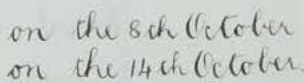 on the 8th October
on the 14th October